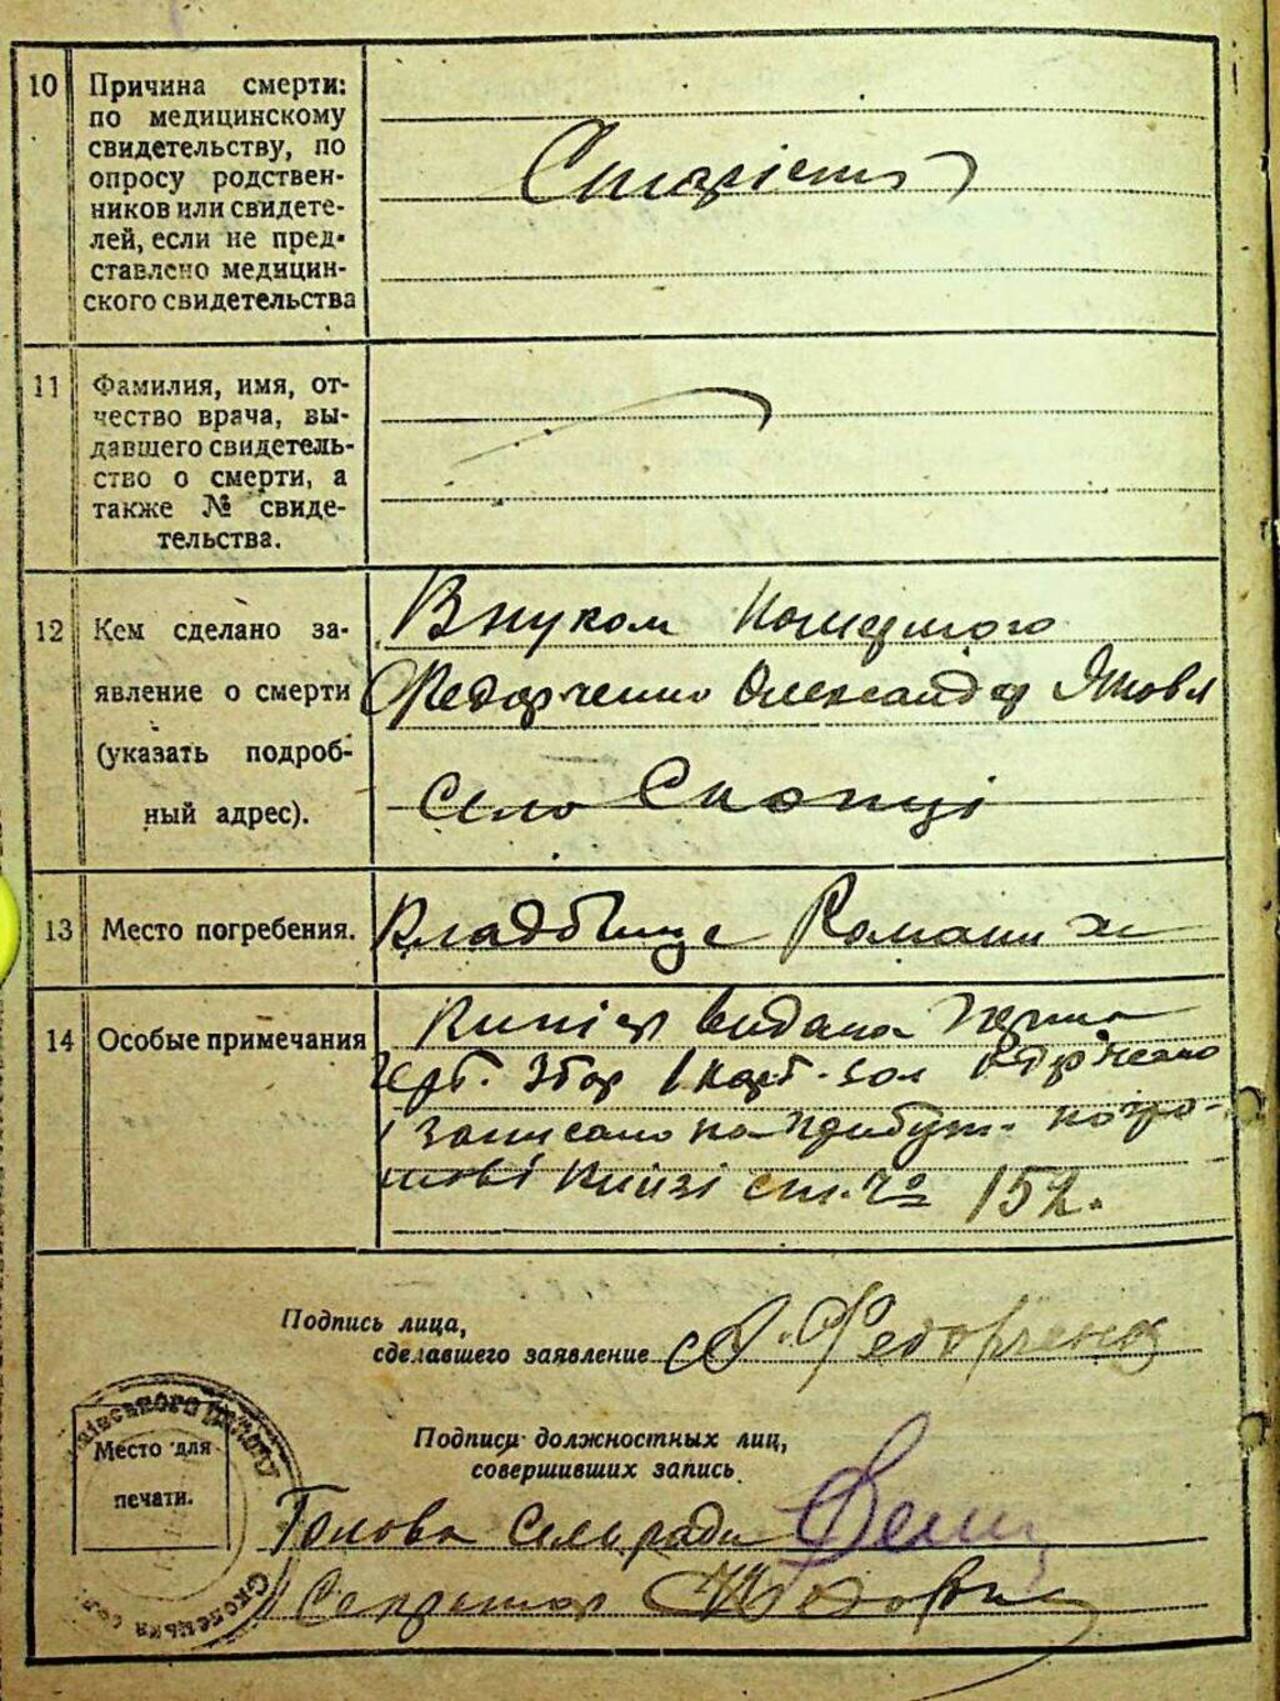 10 Причина смерти:
по медицинскому
свидетельству, по
опросу родствен-
ников или свидете-
лей, если не пред-
ставлено медицин-
ского свидетельства
Старість
11 Фамилия, имя, от-
чество врача, вы-
давшего свидетель-
ство о смерти, а
также № свиде-
тельства.
12 Кем сделано за-
явление о смерти
(указать подроб-
ный адрес).
Внуком Помершого
Федорченко Олександр Яковл
Село Скопці
13 Место погребения.
Кладбище Романих
14 Особые примечания
Копія видана
Герб. Збор 1 карб. зол одержано
і записано на прибут. по гро-
шові книзі ст. 152.
Подпись лица,
сделавшего заявление О. Федорченко
Подписи должностных лиц,
совершивших запись
Место для
печати.
Голова Сельради
Секретар